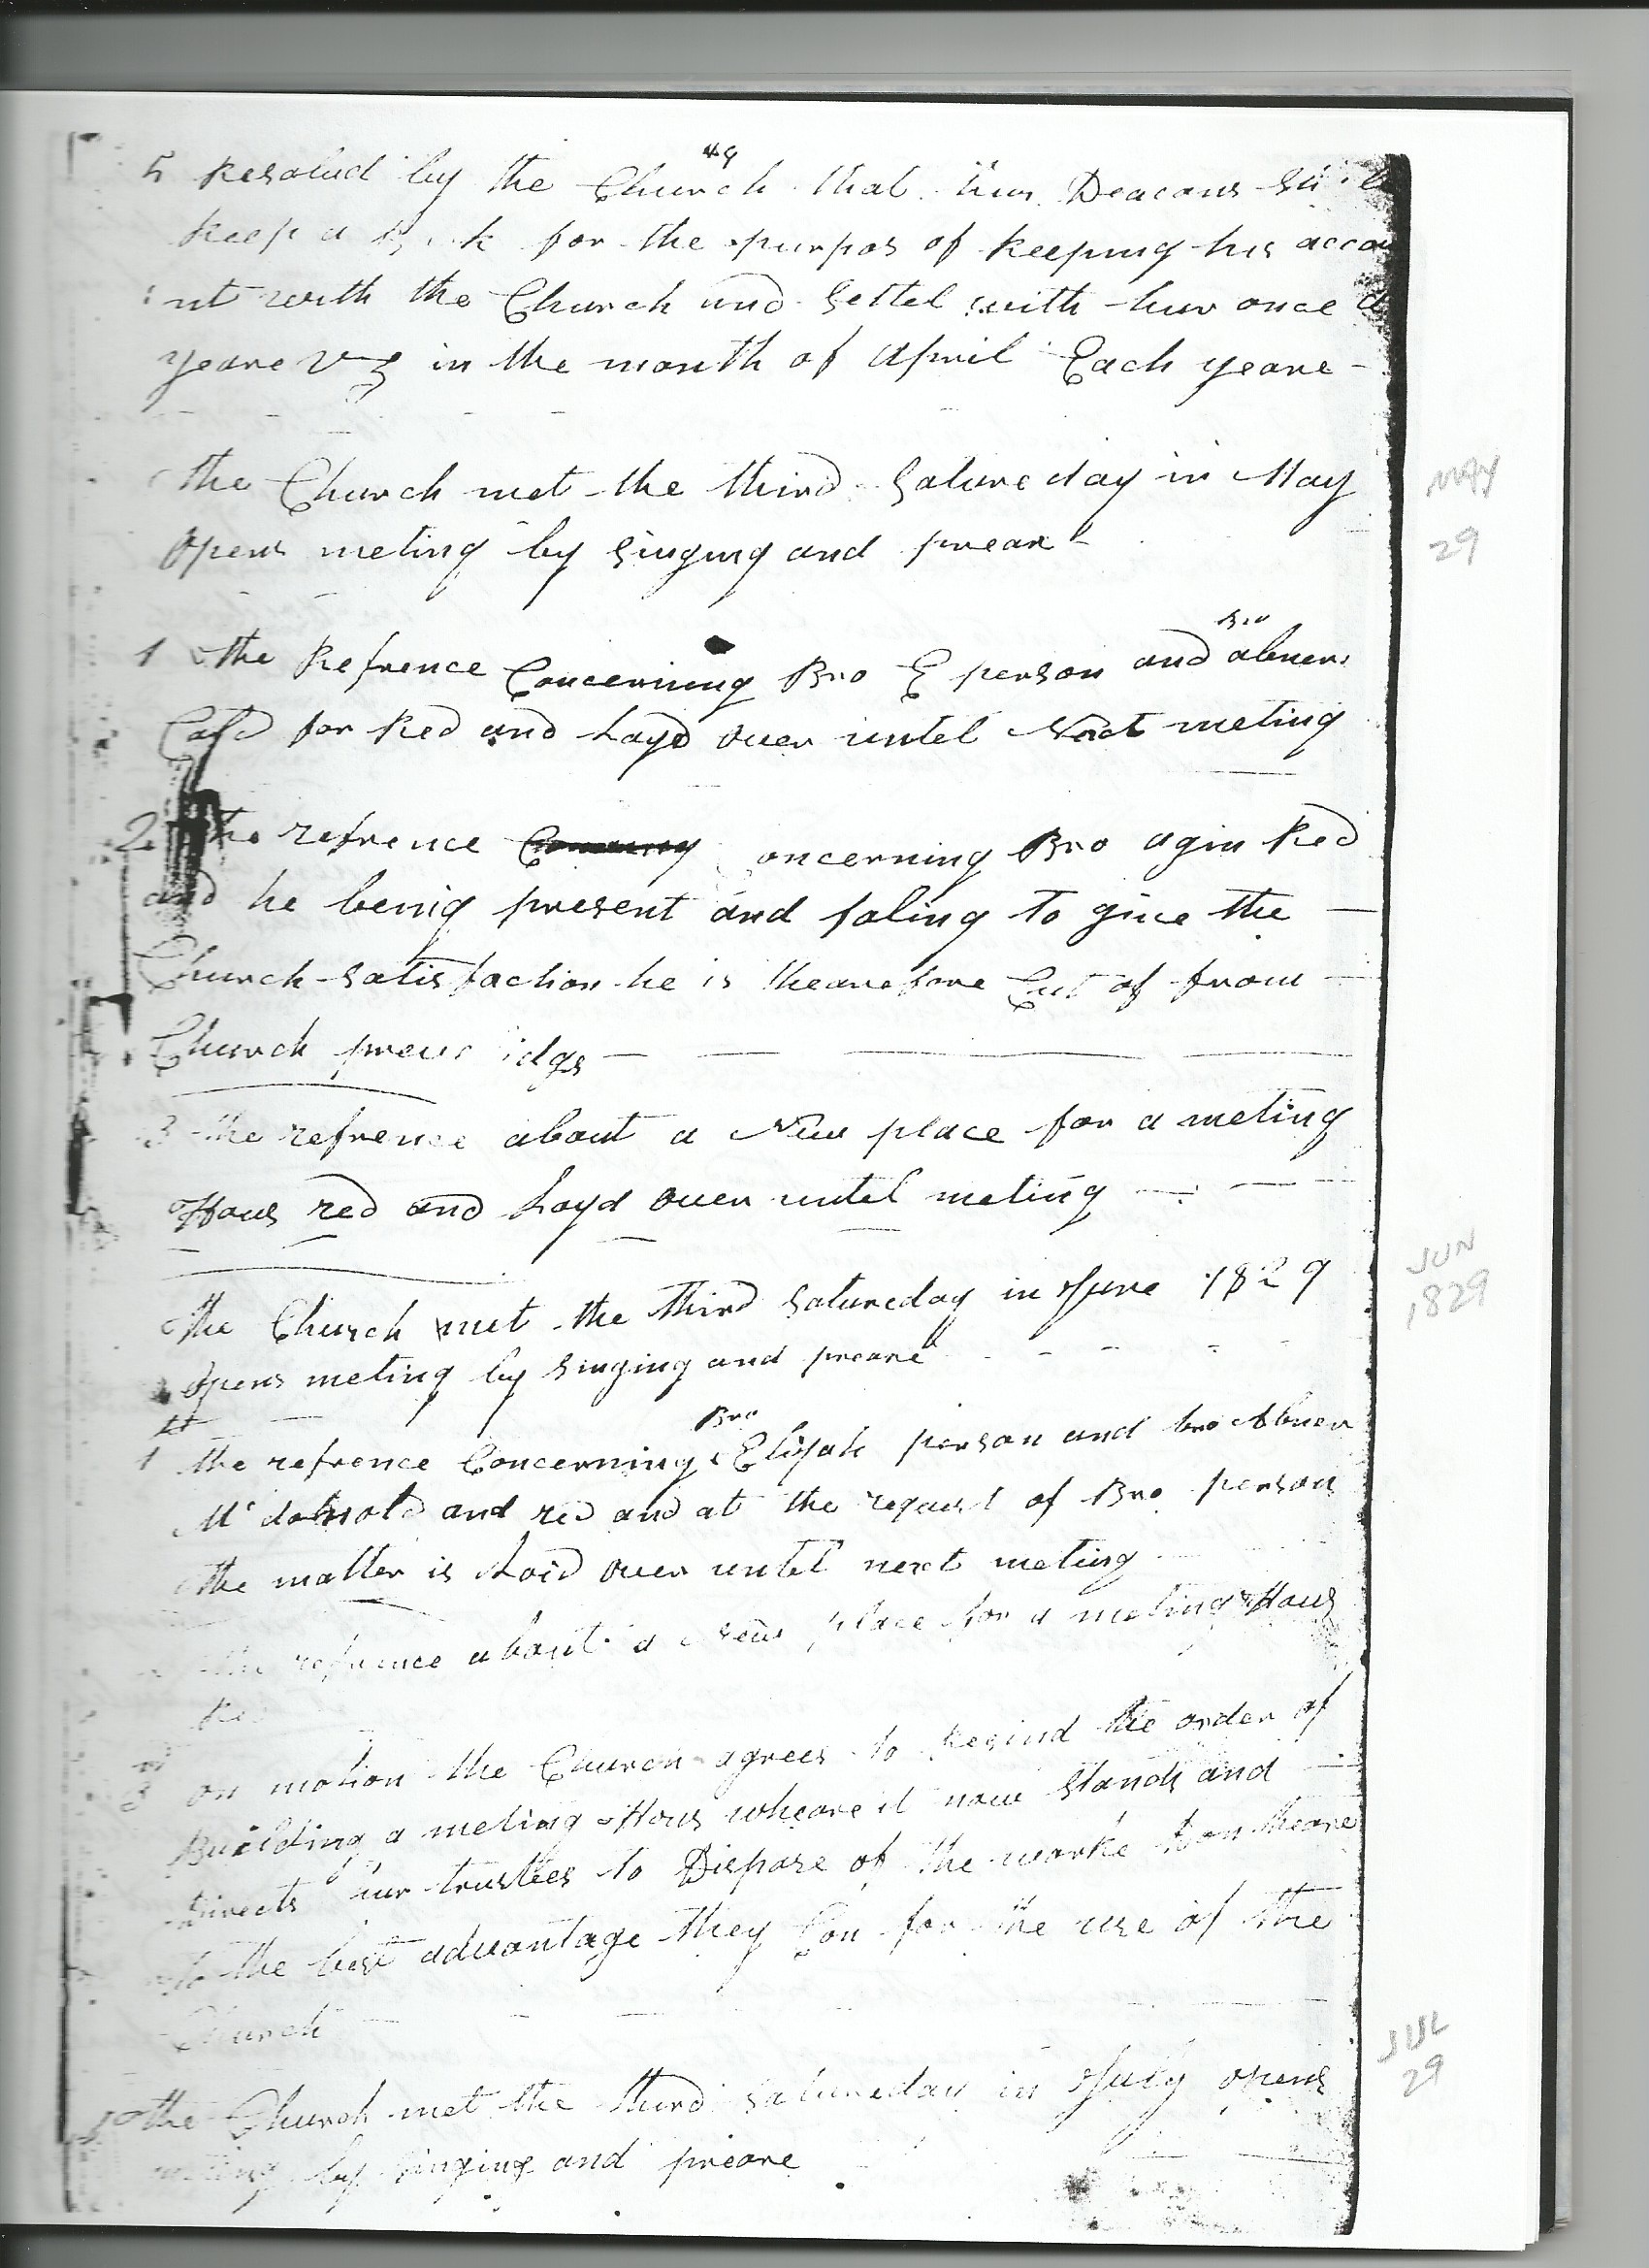 49
5 Resolud by the Church that hur Deacons
keep a for the purpos of keeping his accou
nt with the Church and Settel with hur once a
yeare viz in the month of April Each yeare
the Church met the third Satureday in May
MAY
29
opens meting by singing and preare
Bro
1 the Refrence Concerning Bro E person and abner
Cald for Red and Layd ouer untel Next meting
2 the refrence oncerning Bro agin Red
and he being present and faling to giue the
Church satisfaction he is thearefore Cut of from
Church preuelidgs
3 the refrence about a New place for a meting
Hous red and Layd ouer untel meting
the Church met the third Satureday in June 1829
JUN
1829
opens meting by singing and preare
Bro
1 the refrence Concerning Elijah person and bro Abner
Mc donold and red and at the request of Bro person
the matter is Laid ouer until next meting
the refrence about a New place for a meting Hous
Red
3 on motion the Church agrees to Resind the order of
Building a meting Hous wheare it now stands and
Directs hur trustees to Dispose of the worke don theare
to the best aduantage they Can for the use of the
Church
JUL
29
the Church met the third Satureday in July opens
meting by singing and preare